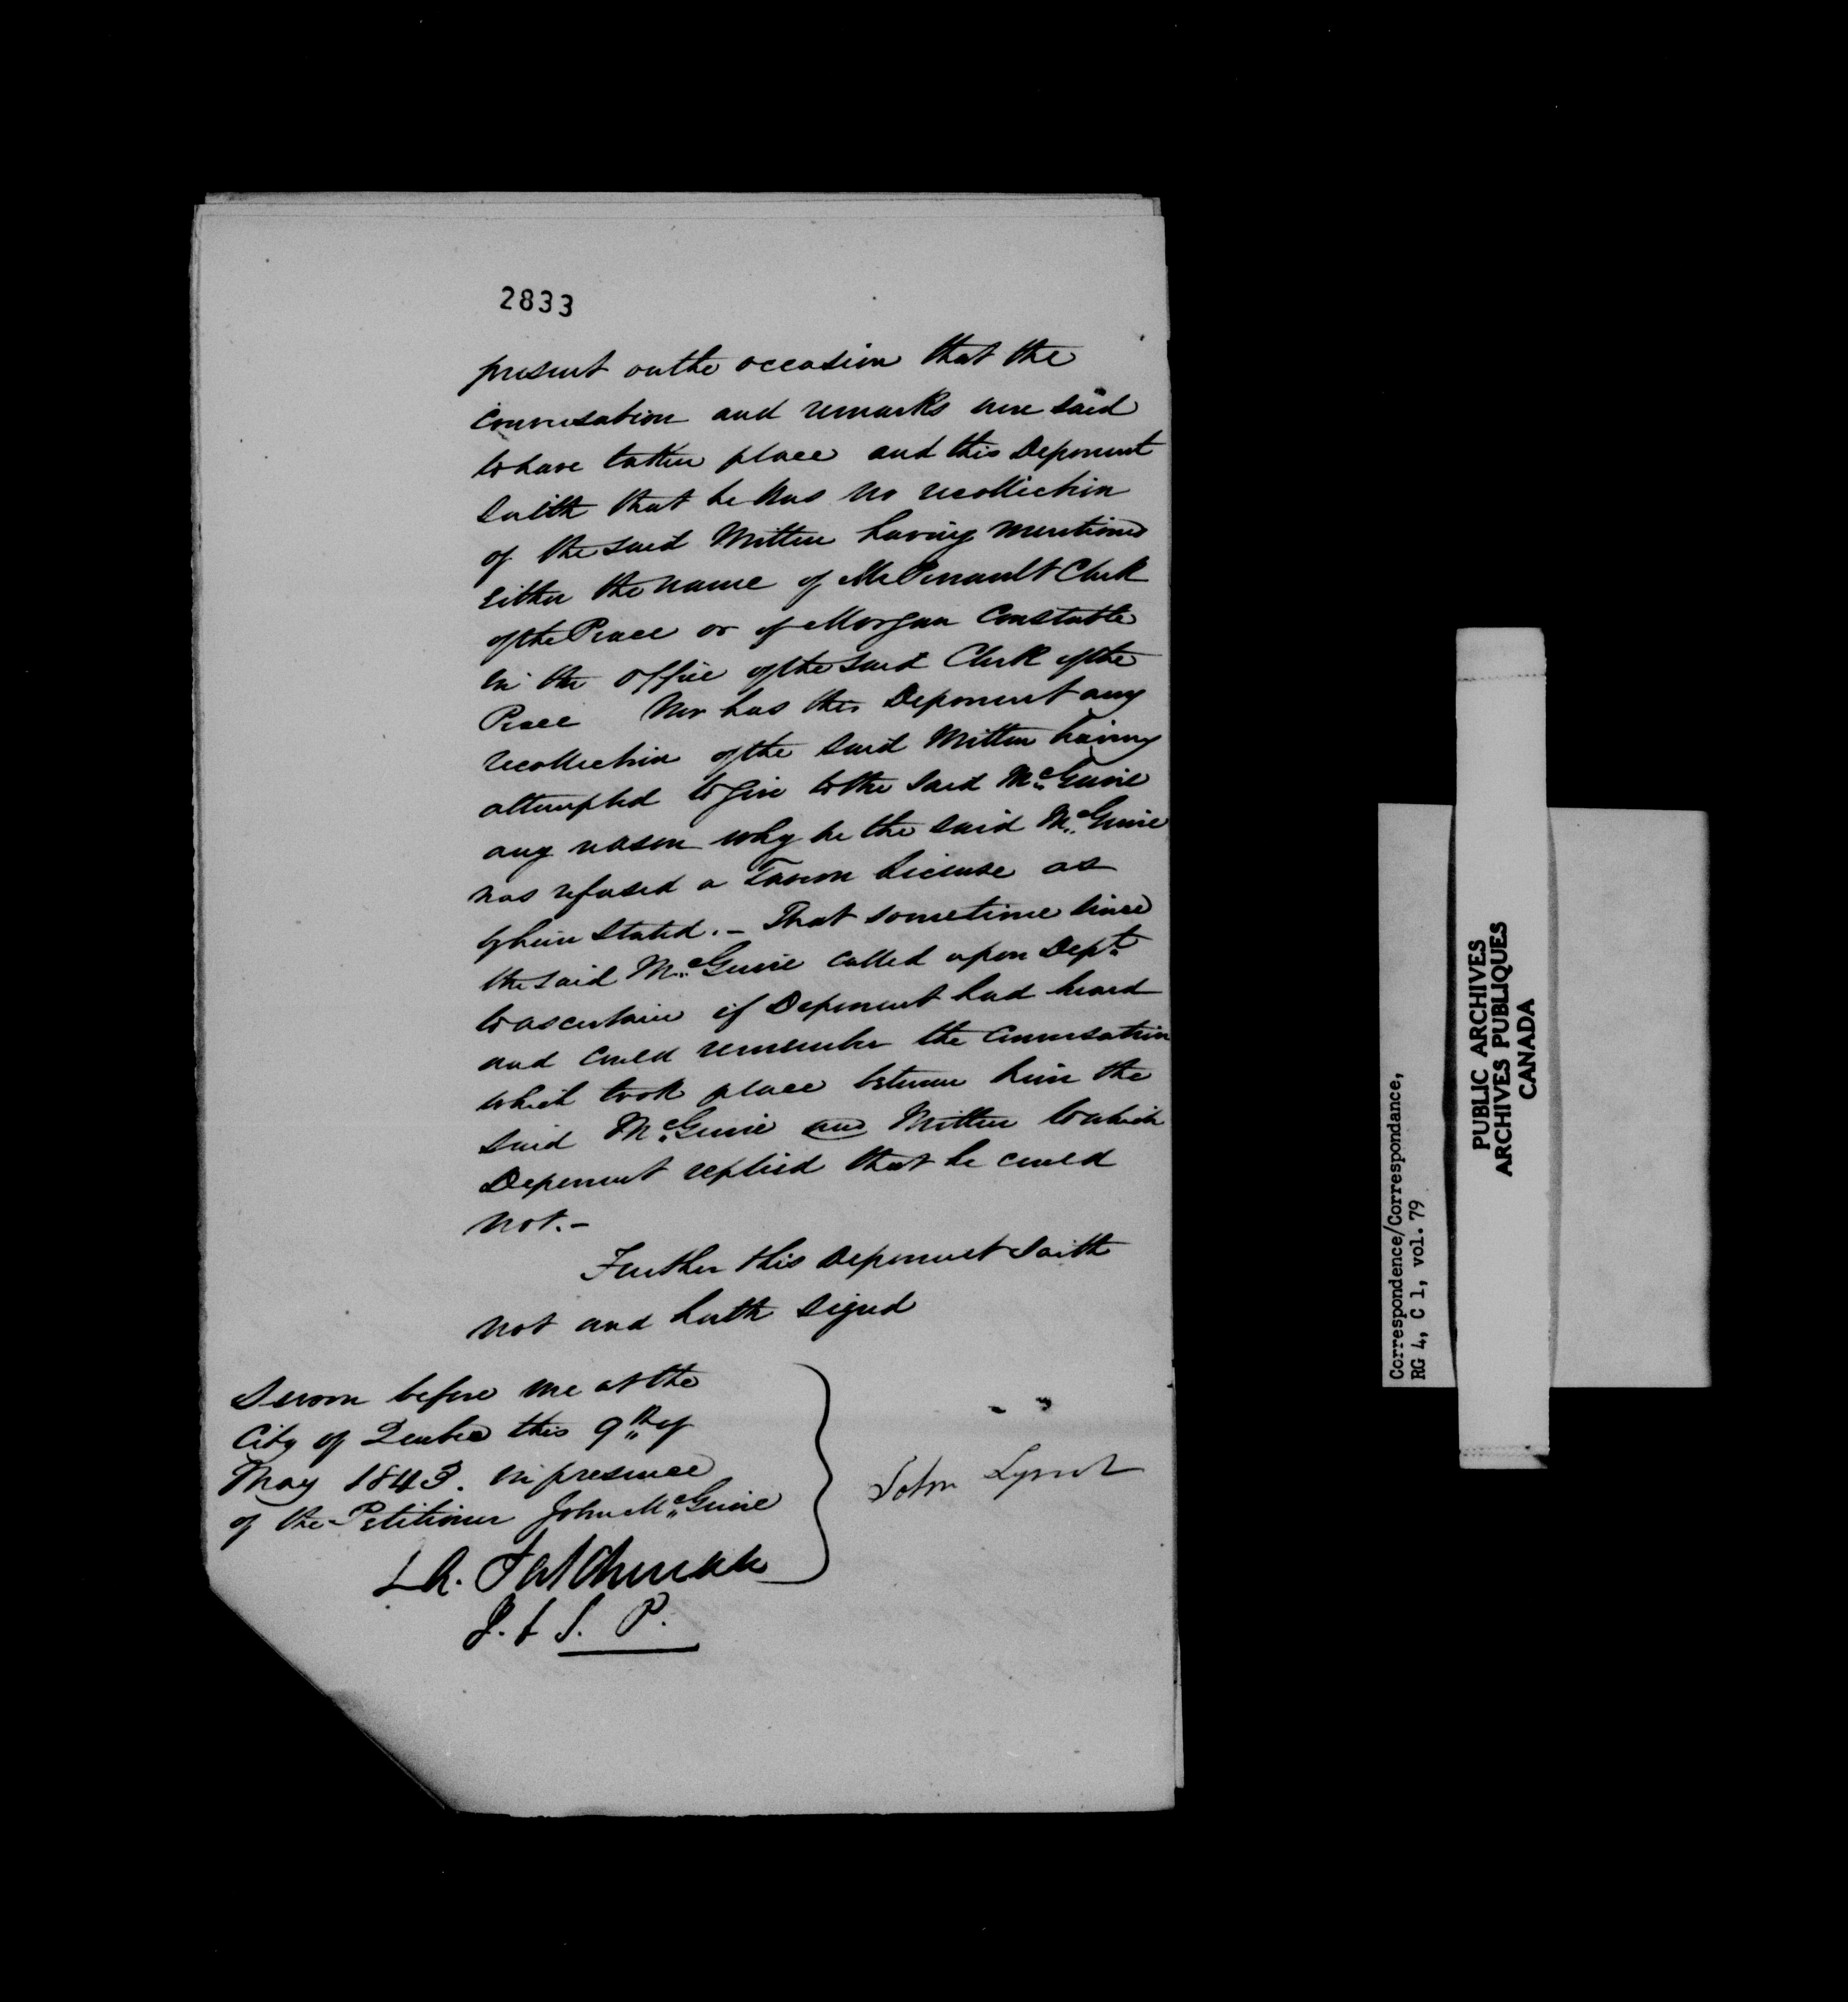 2833
present on the occasion that the
Conversation and remarks were said
to have taken place and this Deponent
Saith that he has no recollection
of the said Mitten having mentioned
Either the name of Mr Perrault Clerk
of the Peace or of Morgan Constable
in the Office of the said Clerk of the
Peace Nor has this Deponent any
recollection of the said Mitten having
attempted to give to the said McGuire
any reason why he the said McGuire
was refused a Tavern License as
by him stated. – That sometime since
the said McGuire called upon Dept
to ascertain if Deponent had heard
and could remember the Conversation
which took place between him the
said McGuire and Mitten to which
Deponent replied that he could
not. –
Further this Deponent Saith
not and hath signed
Sworn before me at the
City of Quebec this 9th of
May 1843. in presence
of the Petitioner John McGuire
John Lynch
J. &amp; S. P.
Correspondence/Correspondance,
RG 4, C 1, vol. 79
PUBLIC ARCHIVES
ARCHIVES PUBLIQUES
CANADA